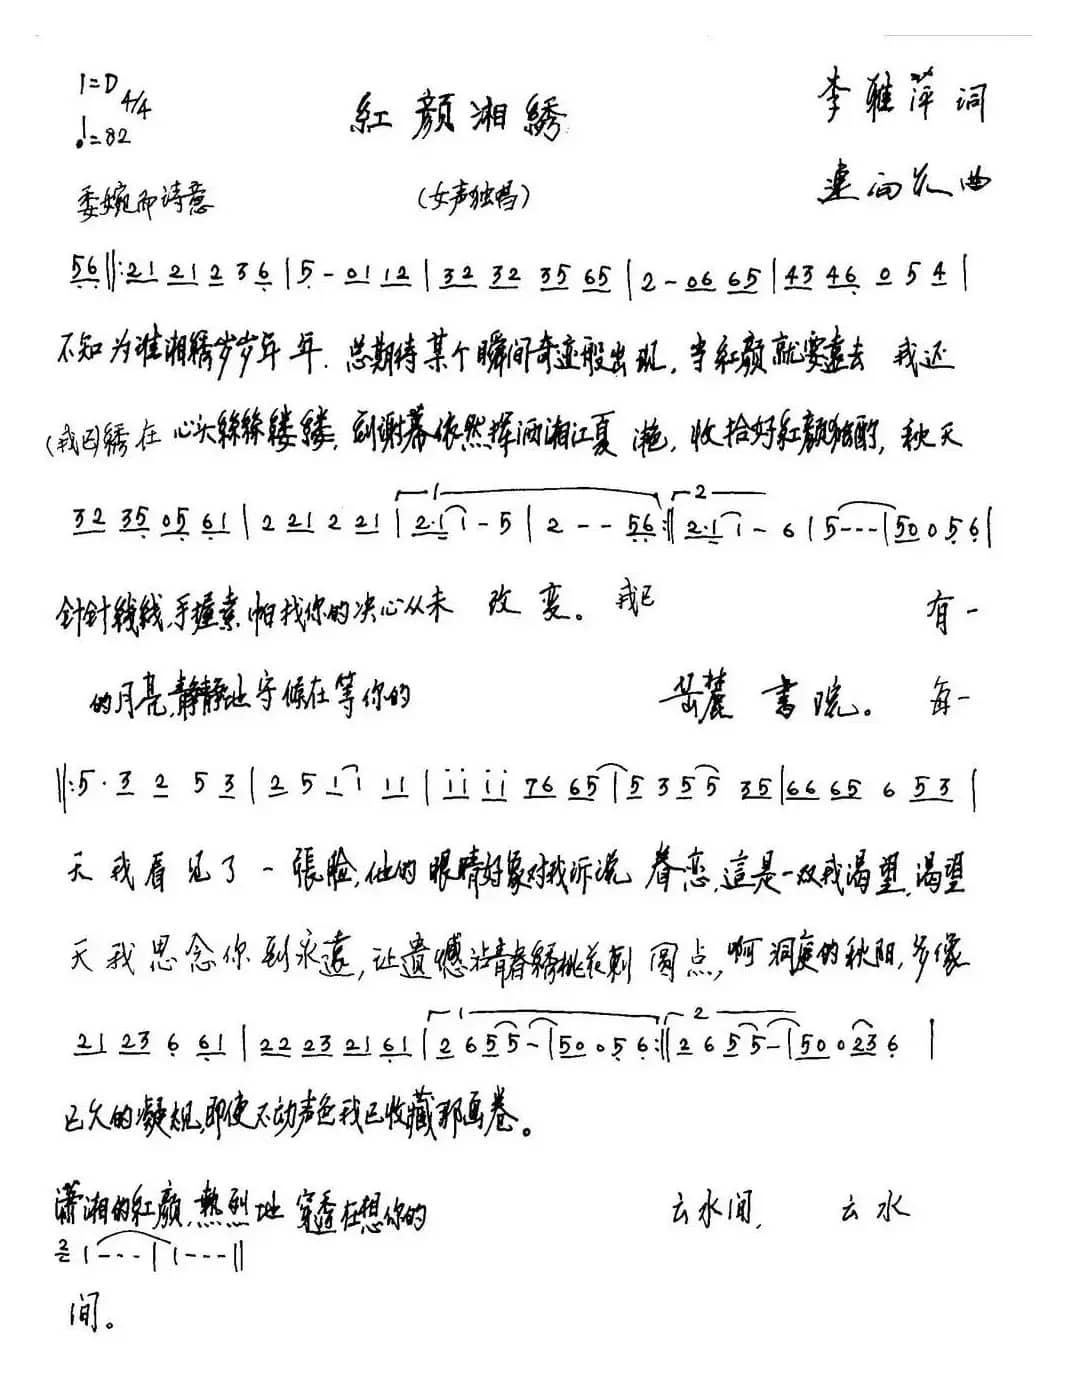 1=D 4/4
♩=82
紅顏湘綉
李雅萍词
连向先曲
委婉而诗意
(女声独唱)
56‖:21 21 2 3 6|5 - 01 12|32 32 35 65|2 - 06 65|43 46 0 5 4|
不知为谁湘绣岁岁年年.总期待某个瞬间奇迹般出现,当紅颜就要远去 我还
(我已)绣在心头絲絲缕缕,到谢幕依然挥洒湘江夏滟,收拾好紅颜独酌,秋天
32 35 05 61|2 21 2 21|1 2·1 1 - 5|2 - - 56:‖2 2·1 1 - 6|5 - - -|50 0 5 6|
针针线线,手握素帕找你的决心从未 改 变。 我已 有一
的月亮,静静地守候在等你的 岳麓 書院。 每一
‖:5· 3 2 5 3|2 5 1 1 11|11 11 76 65|5 3 5 5 35|66 65 6 53|
天我看见了一張脸,他的眼睛好象对我诉说 眷恋,這是一双我渴望,渴望
天我思念你到永遠,让遗憾沾青春綉桃花刺 圆点,啊洞庭的秋阳,多像
21 23 6 61|22 23 21 61|1 2 6 5 5 -|50 0 5 6:‖2 2 6 5 5 -|50 0 23 6|
已久的凝视,即使不动声色我已收藏那画卷。
潇湘的紅颜,熱烈地 穿透在想你的 云水间, 云水
2 1 - - -|1 - - -‖
间。